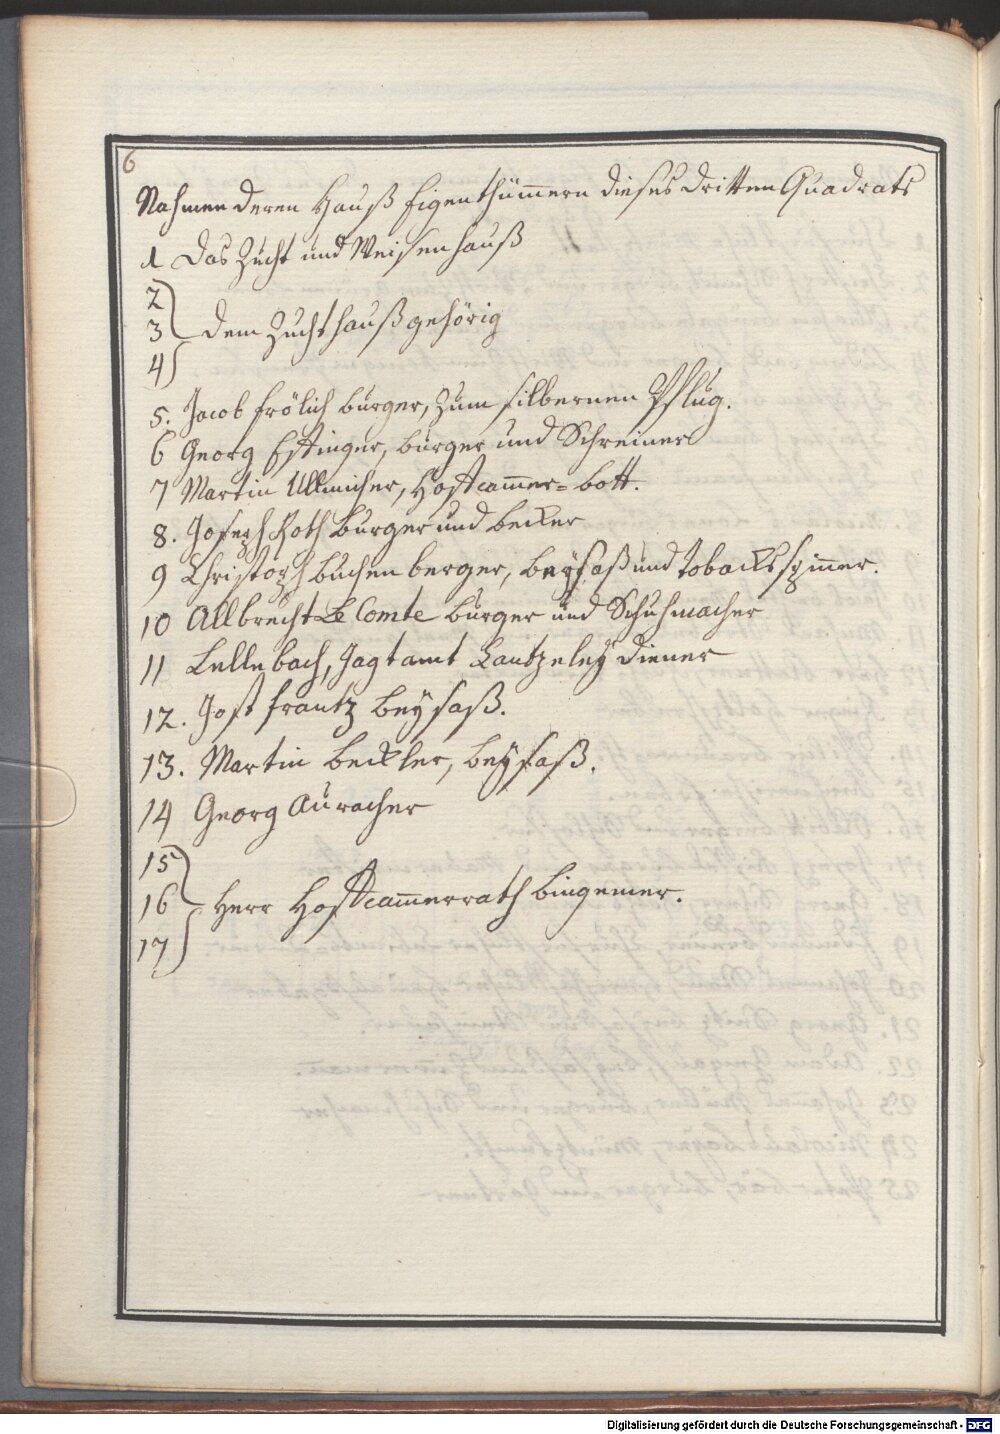 6
Nahmen deren Hauß Eigenthümern dieses dritten Quadrats
1 das Zucht und Weisenhauß
2
3 dem Zuchthauß gehörig
4
5. Jacob frölich burger, zum silbernen Pflug.
6 Georg Estinger, burger und Schreiner
7 Martin Ullmicher, Hofcam̅er=bott.
8. Joseph Roth burger und becker
9 Christoph buchenberger, beysaß und tobacksspinner.
10 Allbrecht Le Comte burger und Schuhmacher
11 Lellebach, Jagtamt Cantzeley diener
12. Jost frantz beysaß.
13. Martin beckler, beysaß.
14 Georg Auracher
15
16 Herr Hofcam̅errath bingemer.
17
Digitalisierung gefördert durch die Deutsche Forschungsgemeinschaft - DFG